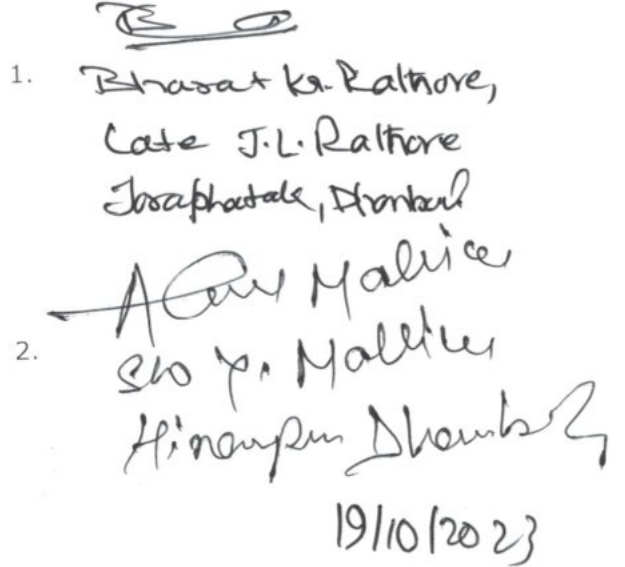 1. Bharat Kr. Rathore,
Late J.L. Rathore
Joraphatak, Dhanbad
Mallick
2. S/o Mallick
Hirapur Dhanbad
19/10/2023